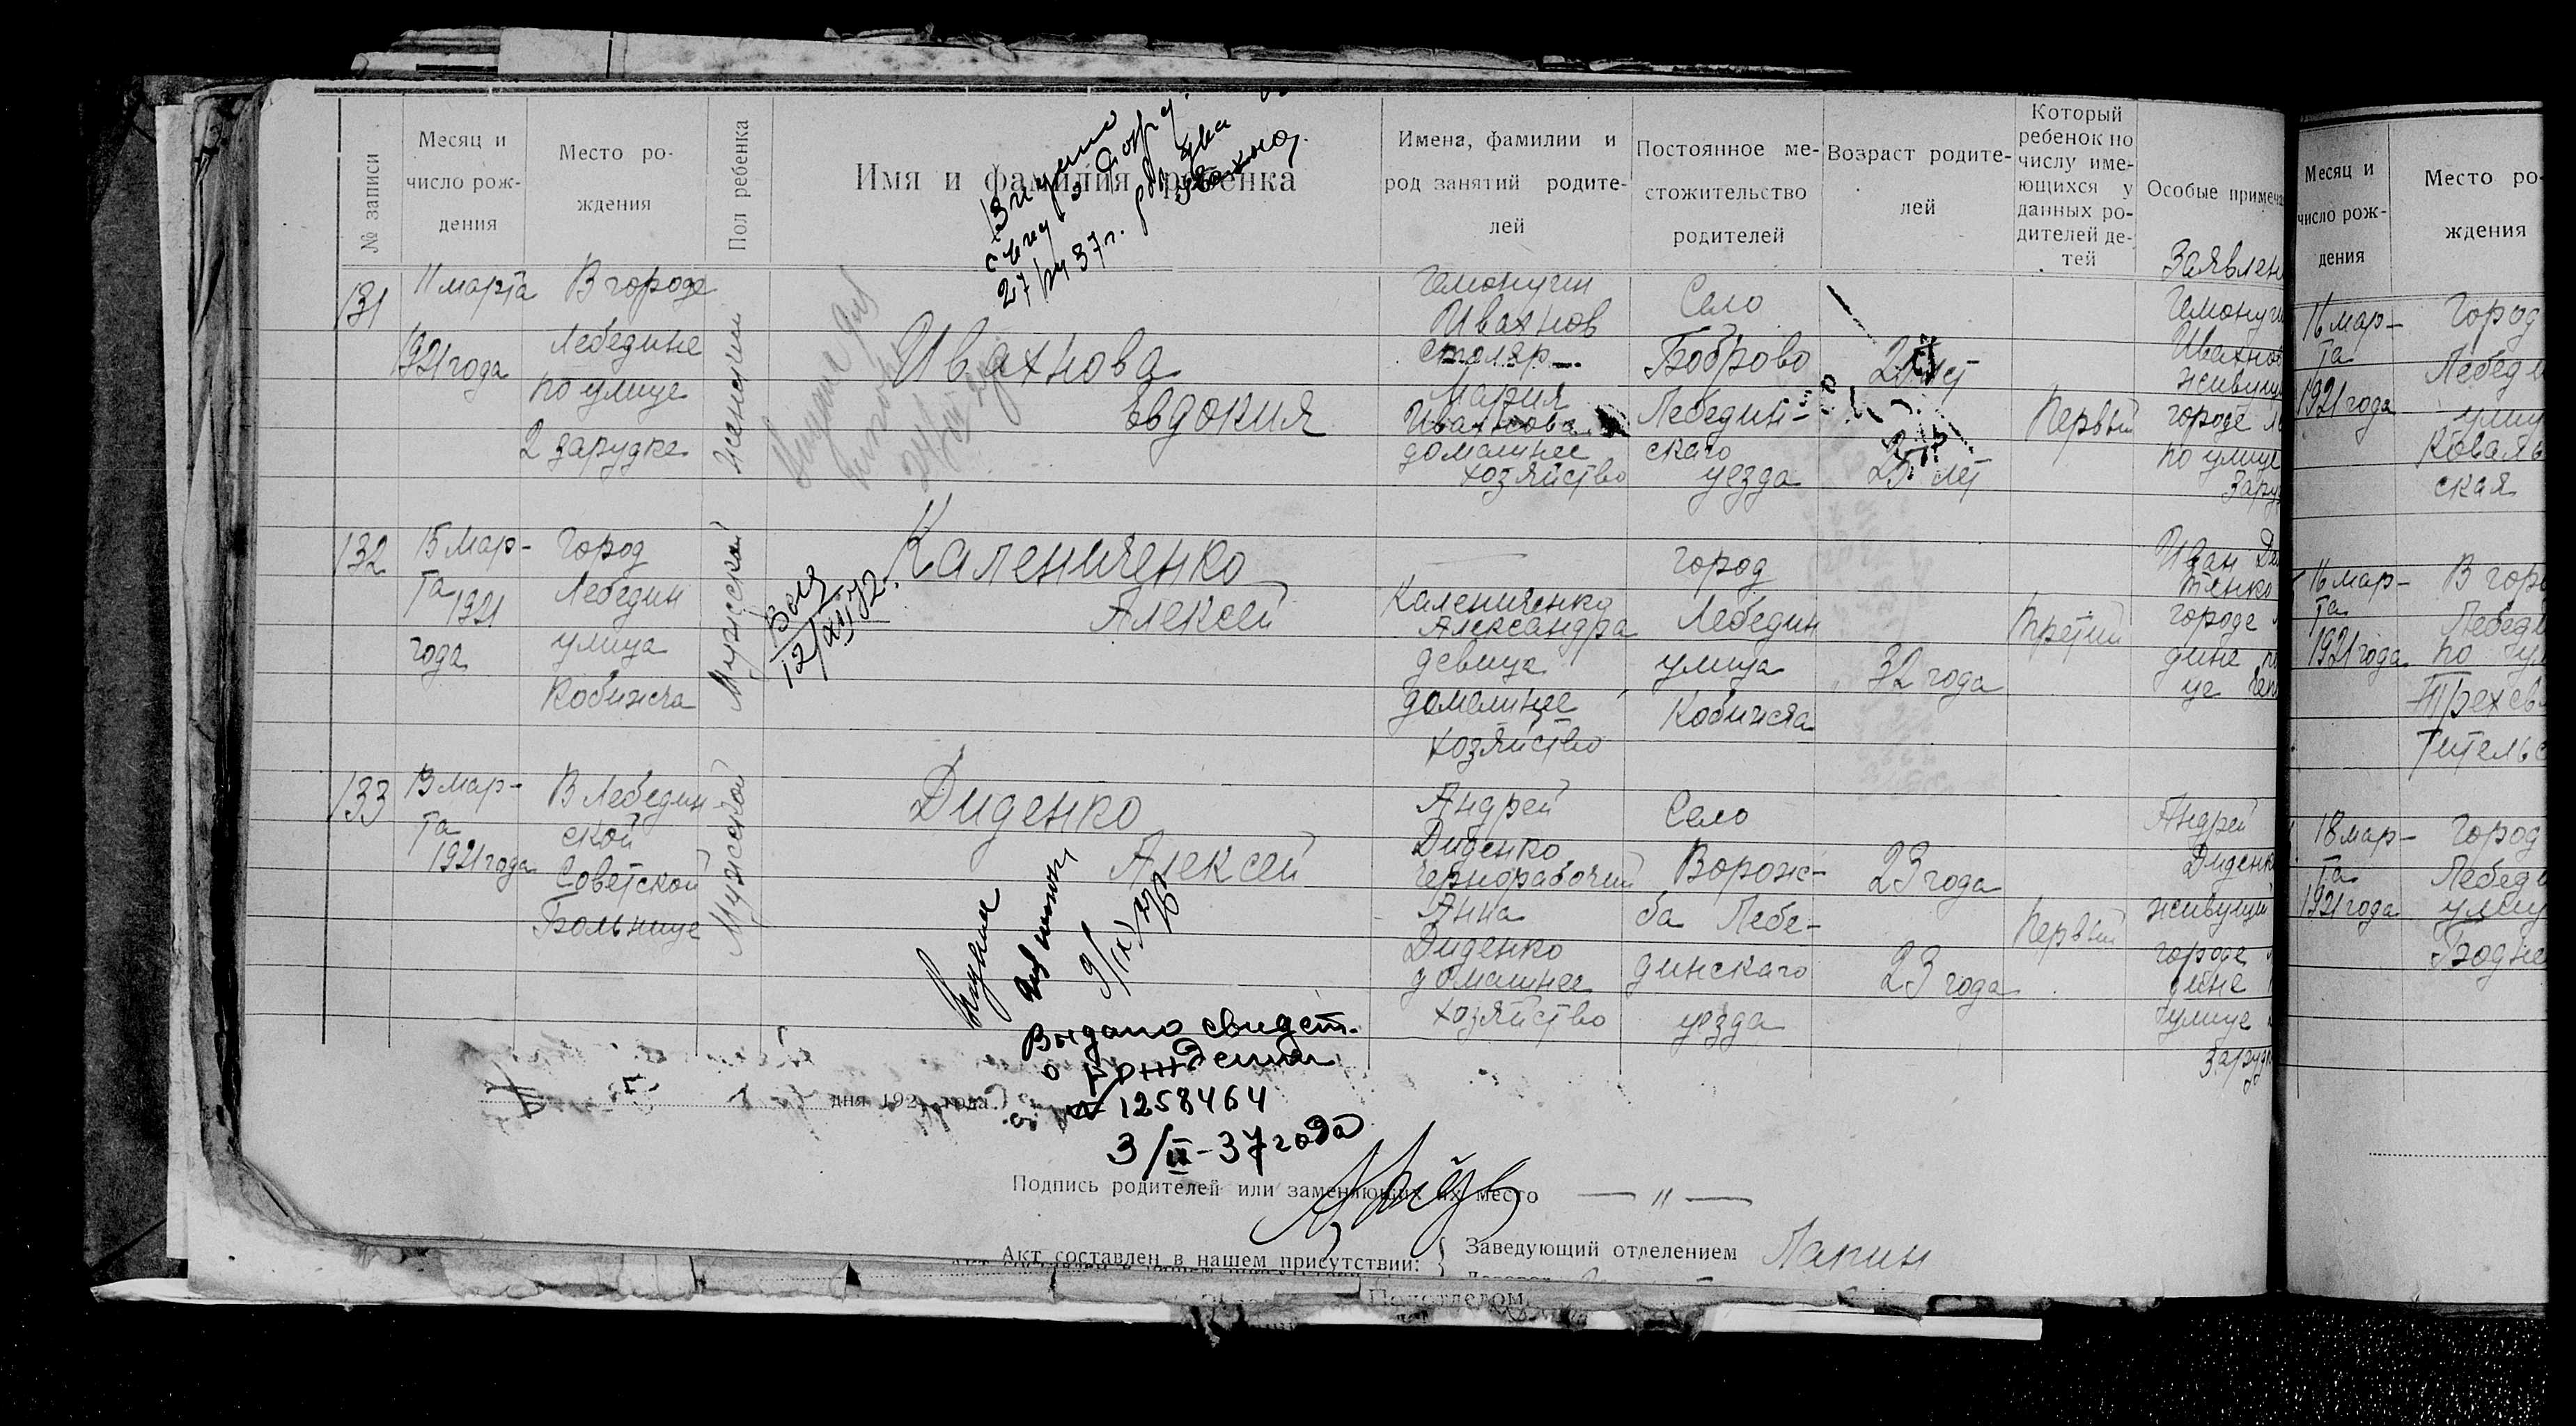 № записи
Месяц и
число рож-
дения
Место ро-
ждения
Пол ребенка
Имя и фамилия ребенка
Имена, фамилии и
род занятий родите-
лей
Постоянное ме-
стожительство
родителей
Возраст родите-
лей
Который
ребенок по
числу име-
ющихся у
данных ро-
дителей де-
тей
Особые примеча
27/IV 37г.
131
11 марта
1921 года
В городе
Лебедине
по улице
2 зарудке
Женский
Ивахнова
Евдокия
Ивахнов
столяр
Мария
Ивахнова
домашнее
хозяйство
Село
Боброво
Лебедин-
скаго
уезда
25 лет
Первый
Заявлен
Ивахнов
живущ
городе Л
по улице
Зару
132
15 мар-
та 1921
года
Город
Лебедин
улица
Кобижча
Мужеской
12/XII 32г.
Калениченко
Алексей
Калениченко
Александра
девица
домашнее
хозяйство
город
Лебедин
улица
Кобижча
32 года
Третий
Иван
городе
дине
133
13 мар-
та
1921 года
В Лебедин
ской
Советской
Больнице
Мужеской
Диденко
Алексей
Андрей
Диденко
Чернорабочий
Анна
Диденко
домашнее
хозяйство
Село
Ворож-
ба Лебе-
динскаго
уезда
23 года
23 года
Первый
Андрей
Диденк
живущий
городе
дине
улице
Заруд
Выдано свидет.
о рождении
№ 1258464
3/II-37 года
дня 192 года
Подпись родителей или заменяющих их место — „ —
Акт составлен в нашем присутствии:
Заведующий отделением Лапин
Подотделом
Месяц и
число рож-
дения
Место ро-
ждения
16 мар-
та
1921 года
Город
Лебеди
улиц
Коваль
ская
16 мар-
та
1921 года
В горо
Лебеди
по ул
Трехсв
тительс
18 мар-
та
1921 года
Город
Лебеди
улиц